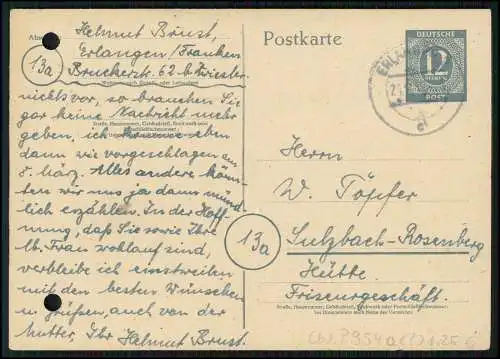 Helmut Brust,
Absender:
Erlangen/Franken
13a
Bruckerstr. 62 b. Drexler
nichts vor, so brauchen Sie
gar keine Nachricht mehr
Straße, Hausnummer, Gebäudeteil, Stockwerk oder
geben, ich komme eben
dann wie vorgeschlagen am
8. März. Alles andere könn-
ten wir uns ja dann münd-
lich erzählen. In der Hoff-
nung, daß Sie sowie Ihre
lb. Frau wohlauf sind,
verbleibe ich einstweilen
mit den besten Wünschen
u. Grüßen, auch von der
Mutter, Ihr Helmut Brust.
Postkarte
DEUTSCHE
12
PFENNIG
POST
ERLANGEN
Herrn
W. Töpfer
13a
Sulzbach-Rosenberg
Hütte
Friseurgeschäft.
Straße, Hausnummer, Gebäudeteil, Stockwerk oder Postschließfachnummer;
bei Untermietern auch Name des Vermieters